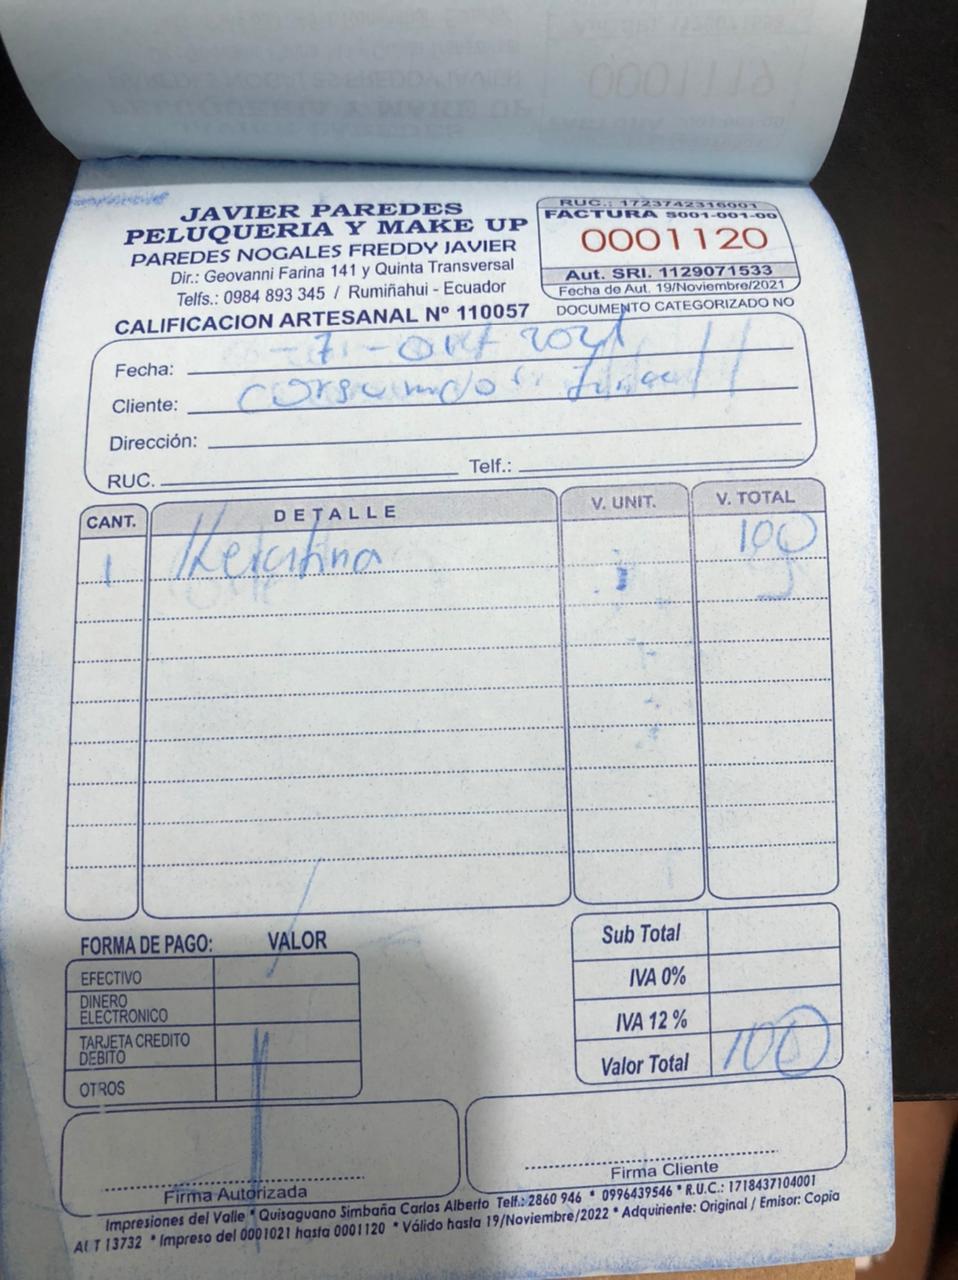 JAVIER PAREDES
PELUQUERIA Y MAKE UP
PAREDES NOGALES FREDDY JAVIER
Dir.: Geovanni Farina 141 y Quinta Transversal
Telfs.: 0984 893 345 / Rumiñahui - Ecuador
CALIFICACION ARTESANAL Nº 110057
RUC.: 1723742316001
FACTURA S001-001-00
0001120
Aut. SRI. 1129071533
Fecha de Aut. 19/Noviembre/2021
DOCUMENTO CATEGORIZADO NO
Fecha: 7 -
Cliente: consumidor final
Dirección:
RUC. Telf.:
CANT. DETALLE V. UNIT. V. TOTAL
1 Keratina 100
FORMA DE PAGO: VALOR
EFECTIVO
DINERO ELECTRONICO
TARJETA CREDITO DEBITO
OTROS
Sub Total
IVA 0%
IVA 12 %
Valor Total 100
Firma Autorizada
Firma Cliente
Impresiones del Valle * Quisaguano Simbaña Carlos Alberto Telf.: 2860 946 * 0996439546 * R.U.C.: 1718437104001
AUT 13732 * Impreso del 0001021 hasta 0001120 * Válido hasta 19/Noviembre/2022 * Adquiriente: Original / Emisor: Copia